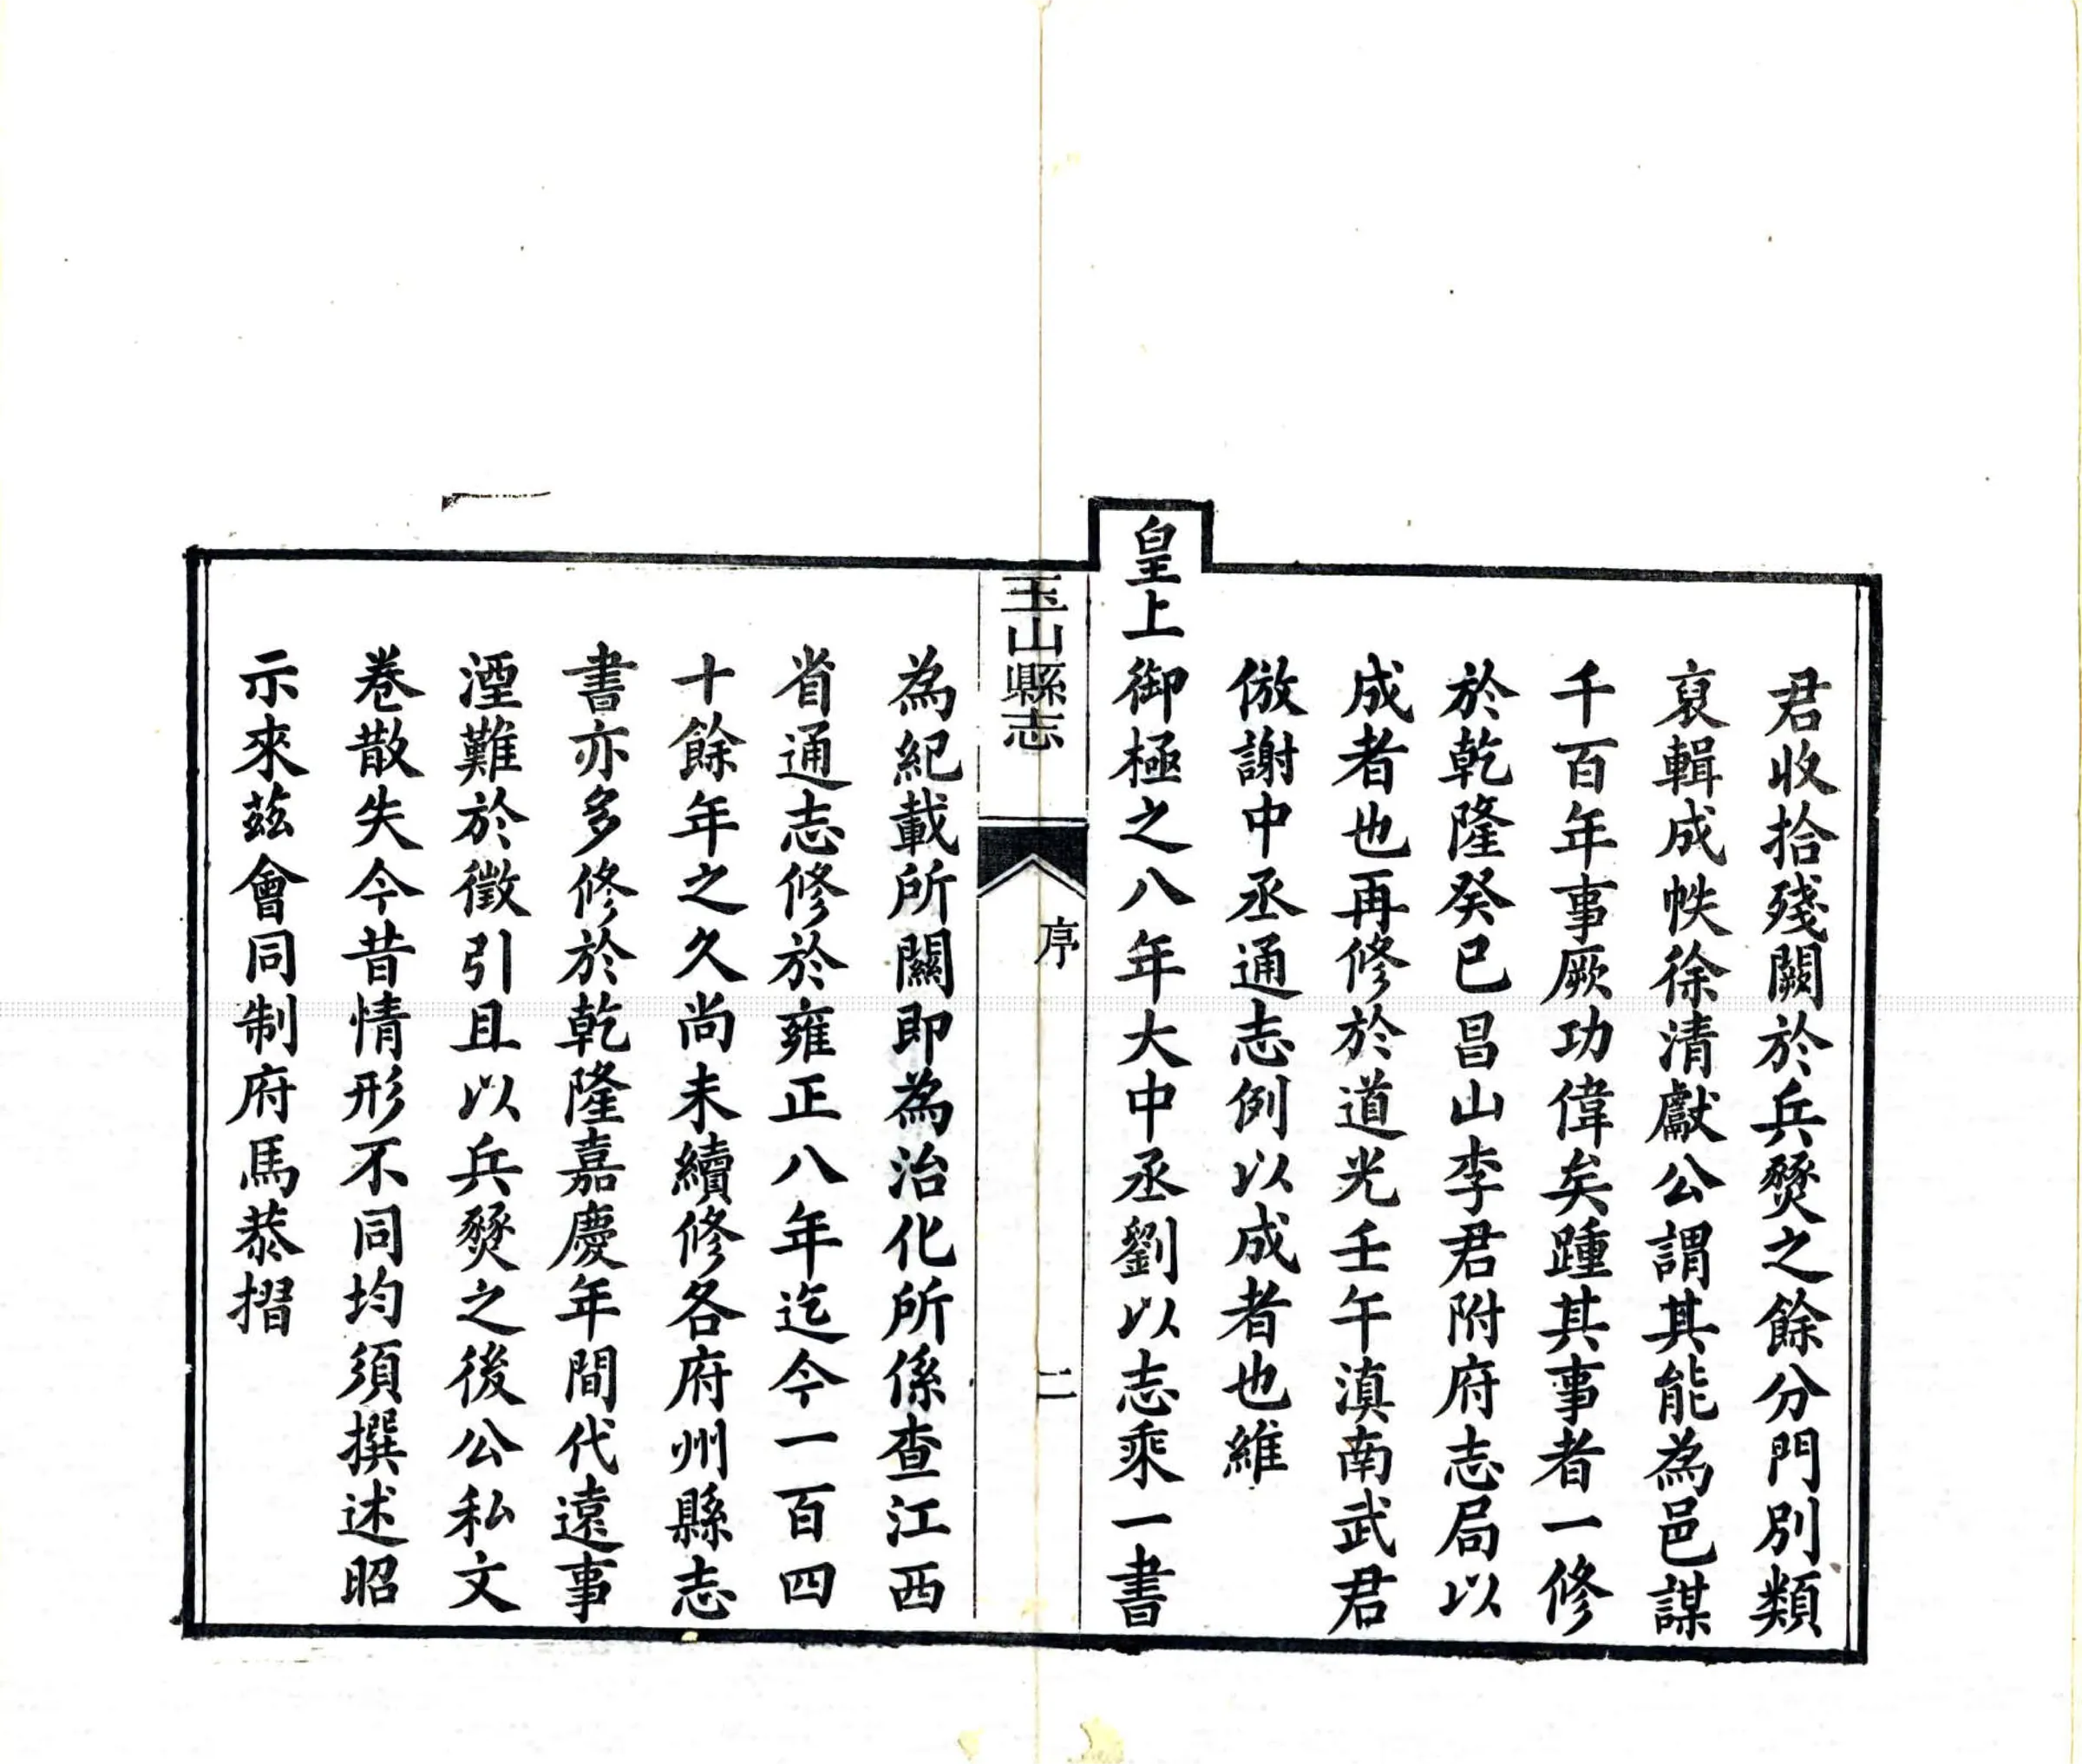 君收拾殘闕於兵燹之餘分門別類
裒輯成帙徐清獻公謂其能為邑謀
千百年事厥功偉矣踵其事者一修
於乾隆癸巳昌山李君附府志局以
成者也再修於道光壬午滇南武君
倣謝中丞通志例以成者也維
皇上御極之八年大中丞劉以志乘一書
玉山縣志
序
二
為紀載所關即為治化所係查江西
省通志修於雍正八年迄今一百四
十餘年之久尚未續修各府州縣志
書亦多修於乾隆嘉慶年間代遠事
湮難於徵引且以兵燹之後公私文
卷散失今昔情形不同均須撰述昭
示來茲會同制府馬恭摺